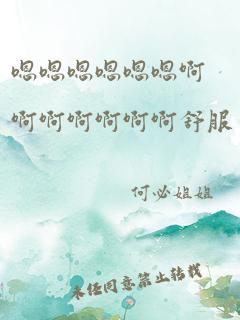 嗯嗯嗯嗯嗯嗯啊
啊啊啊啊啊啊舒服
何必姐姐
未经同意禁止转载